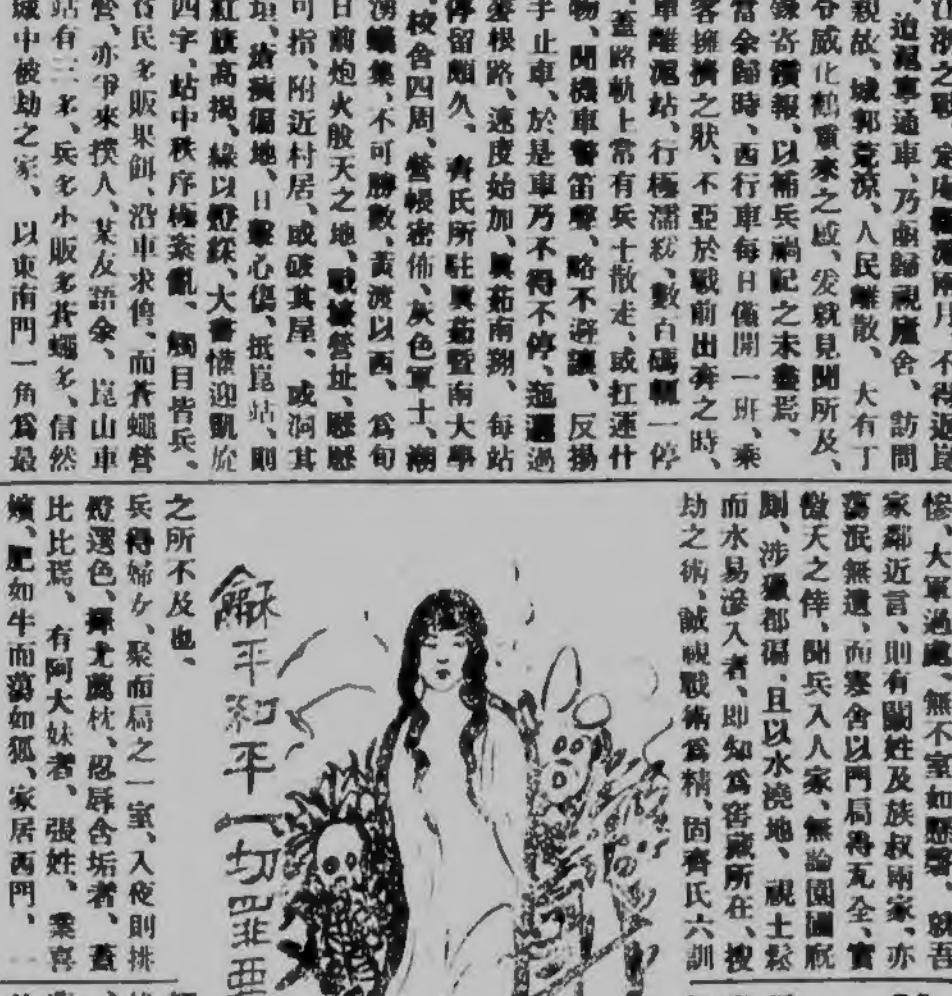 迫滬寧通車、乃亟歸視廬舍、訪問
親故、城郭荒涼、人民離散、大有丁
令威化鶴重來之感、爰就見聞所及、
錄寄鑽報、以補兵禍記之未盡焉、
當余歸時、西行車每日僅開一班、乘
客擁擠之狀、不亞於戰前出奔之時、
車離滬站、行極濡緩、數百碼輒一停
蓋路軌上常有兵士散走、或扛運什
物、聞機車警笛聲、略不避讓、反揚
手止車、於是車乃不得不停、迤邐過
麥根路、速度始加、眞茹南翔、每站
停留頗久、齊氏所駐眞茹暨南大學
校舍四周、營帳密佈、灰色軍士、潮
湧蟻集、不可勝數、黃渡以西、爲旬
日前炮火殷天之地、戰壕營址、歷歷
可指、附近村居、或破其屋、或洞其
垣、瘡痍徧地、日擊心傷、抵崑站、則
紅旗高揭、綠以燈綵、大書懽迎凱旋
四字、站中秩序極紊亂、觸目皆兵、
民多販果餌、沿車求售、而蒼蠅營
營、亦爭來撲人、某友語余、崑山車
站有三多、兵多小販多蒼蠅多、信然
城中被劫之家、以東南門一角爲最
慘、大軍過處、無不室如懸磬、就吾
家鄰近言、則有關姓及族叔兩家、亦
蕩泯無遺、而寒舍以門局得瓦全、實
徼天之倖、聞兵入人家、無論園圃廐
厠、涉獵都徧、且以水澆地、視土鬆
而水易滲入者、即知爲窖藏所在、搜
劫之術、誠視戰術爲精、固齊氏六訓
龢平和平一切罪
之所不及也、
兵得婦女、聚而扃之一室、入夜則挑
燈選色、擇尤薦枕、忍辱含垢者、蓋
比比焉、有阿大妹者、張姓、業喜
嬪、肥如牛而蕩如狐、家居西門、